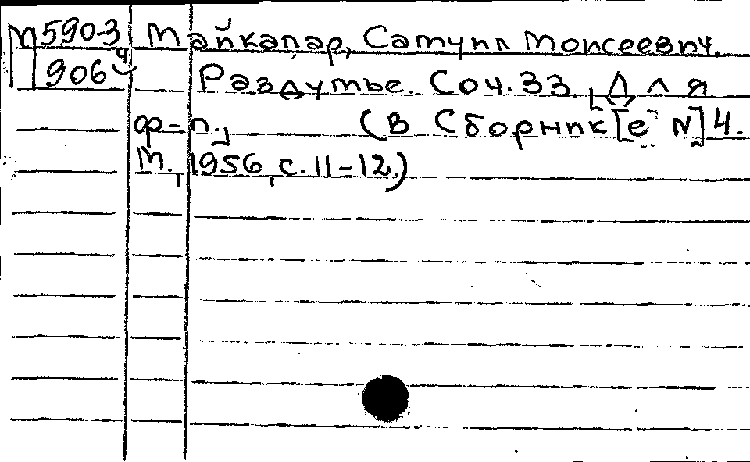 М5903 Майкапар, Самуил Моисеевич.
906ч Раздумье. Соч.33. Для
ф-п., (В Сборник[е N]4.
М., 1956, с.11-12.)